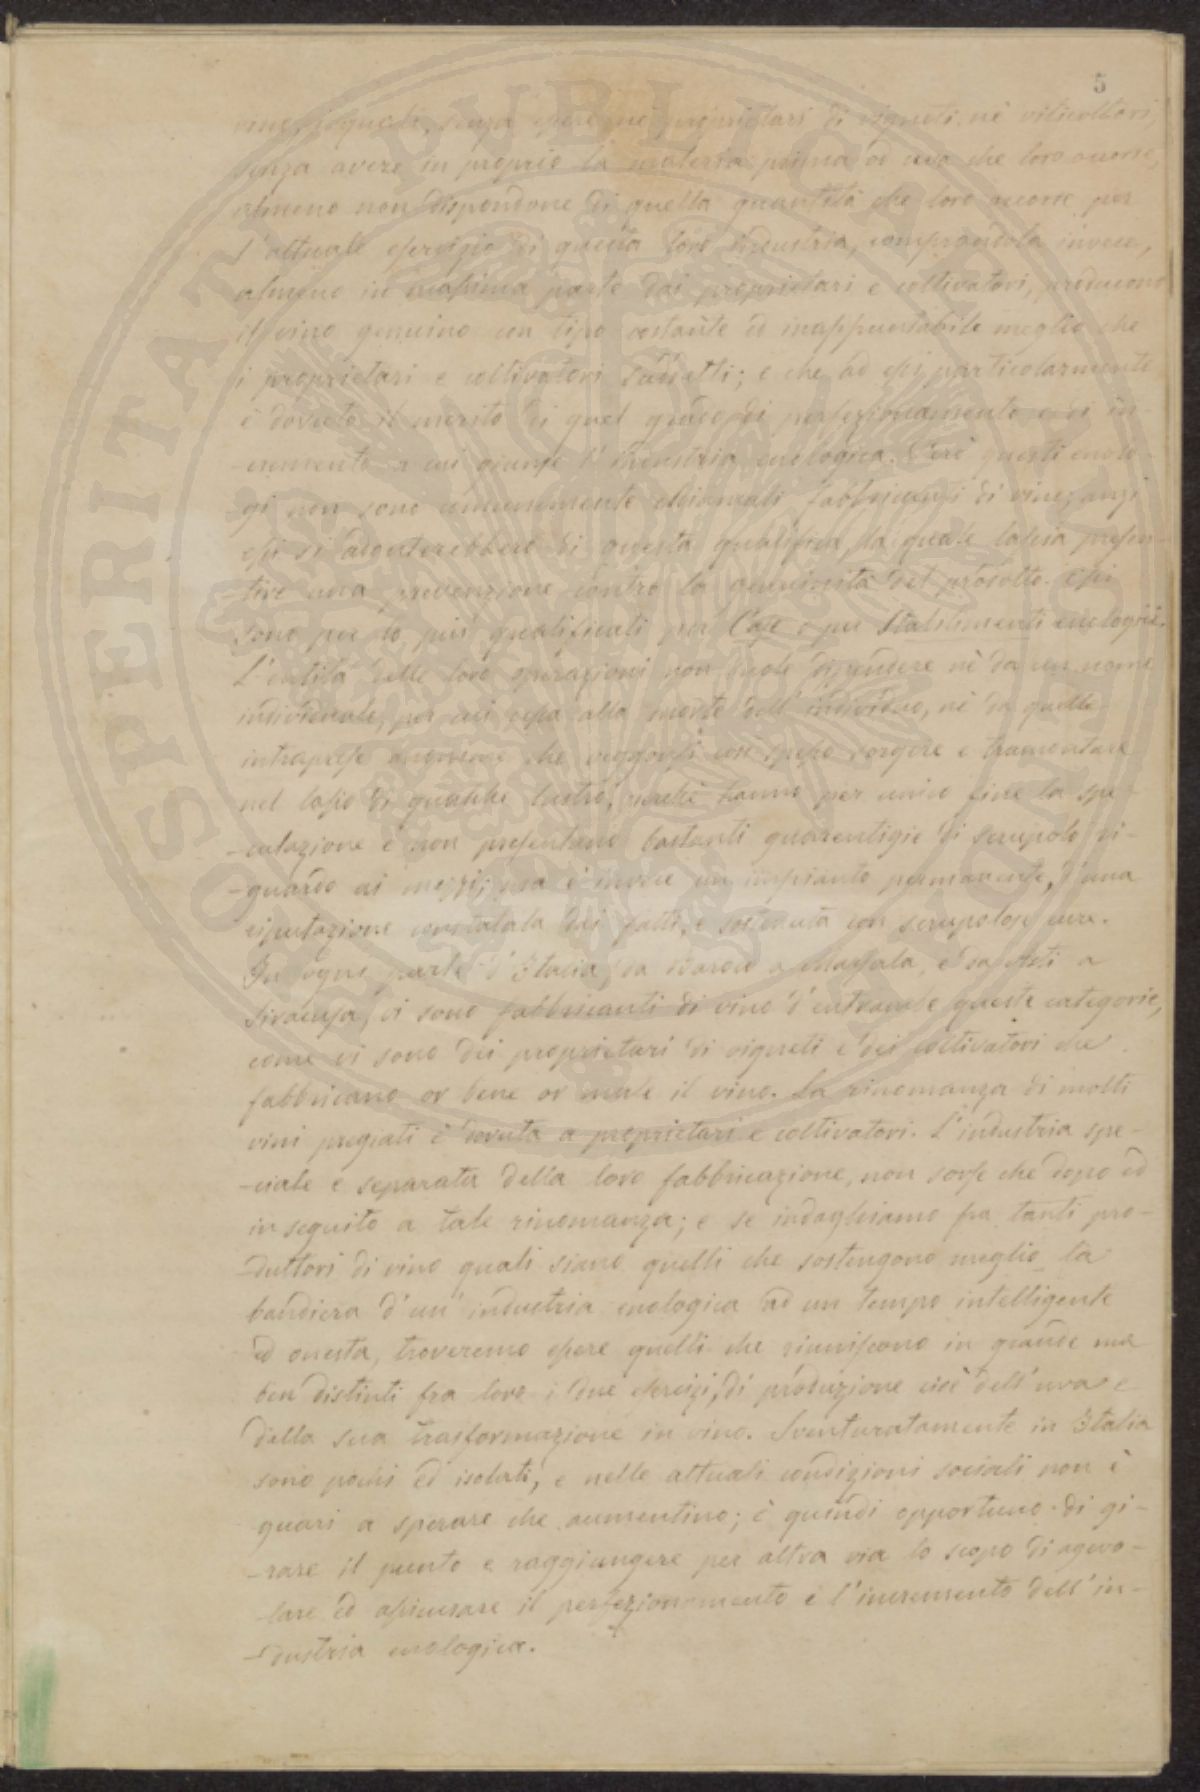 5
vino, i quali, senza essere nè proprietari di vigneti nè viticoltori,
senza avere in proprio la materia prima od uva che loro occorre,
almeno non dispondono di quella quantità che loro occorre per
l'attuale esercizio di questa loro industria, comprandola invece,
almeno in massima parte dai proprietari e coltivatori, producono
il vino genuino con tipo costante ed inappuntabile meglio che
i proprietari e coltivatori suddetti; e che ad essi particolarmente
è dovuto il merito di quel grado di perfezionamento e di in-
-cremento a cui giunse l'industria enologica. Però questi enolo-
-gi non sono comunemente chiamati fabbricanti di vino; anzi
essi si adonterebbero di questa qualifica, la quale lascia presen-
-tire una prevenzione contro la genuinità del prodotto. Essi
sono per lo più qualificati per Case o per Stabilimenti enologici.
L'entità delle loro operazioni non suole dipendere nè da un nome
individuale, per cui cessa alla morte dell'individuo, nè da quelle
intraprese anonime che veggonsi così spesso sorgere e tramontare
nel lasso di qualche lustro, perchè hanno per unico fine la spe-
-culazione e non presentano bastanti guarentigie di scrupolo ri-
-guardo ai mezzi; ma è invece un impianto permanente, d'una
riputazione constatata dai fatti, e sostenuta con scrupolose cure.
In ogni parte d'Italia, da Barolo a Marsala, e da Asti a
Siracusa, vi sono fabbricanti di vino d'entrambe queste categorie,
come vi sono dei proprietari di vigneti e dei coltivatori che
fabbricano or bene or male il vino. La rinomanza di molti
vini pregiati è dovuta a proprietari e coltivatori. L'industria spe-
-ciale e separata della loro fabbricazione, non sorse che dopo ed
in seguito a tale rinomanza; e se indaghiamo fra tanti pro-
-duttori di vino quali siano quelli che sostengono meglio la
bandiera d'un'industria enologica ad un tempo intelligente
ed onesta, troveremo essere quelli che riuniscono in grande ma
ben distinti fra loro i due esercizi, di produzione cioè dell'uva e
della sua trasformazione in vino. Sventuratamente in Italia
sono pochi ed isolati, e nelle attuali condizioni sociali non è
guari a sperare che aumentino; è quindi opportuno di gi-
-rare il punto e raggiungere per altra via lo scopo di agevo-
-lare ed assicurare il perfezionamento e l'incremento dell'in-
-dustria enologica.
PROSPERITATI PUBLICAE